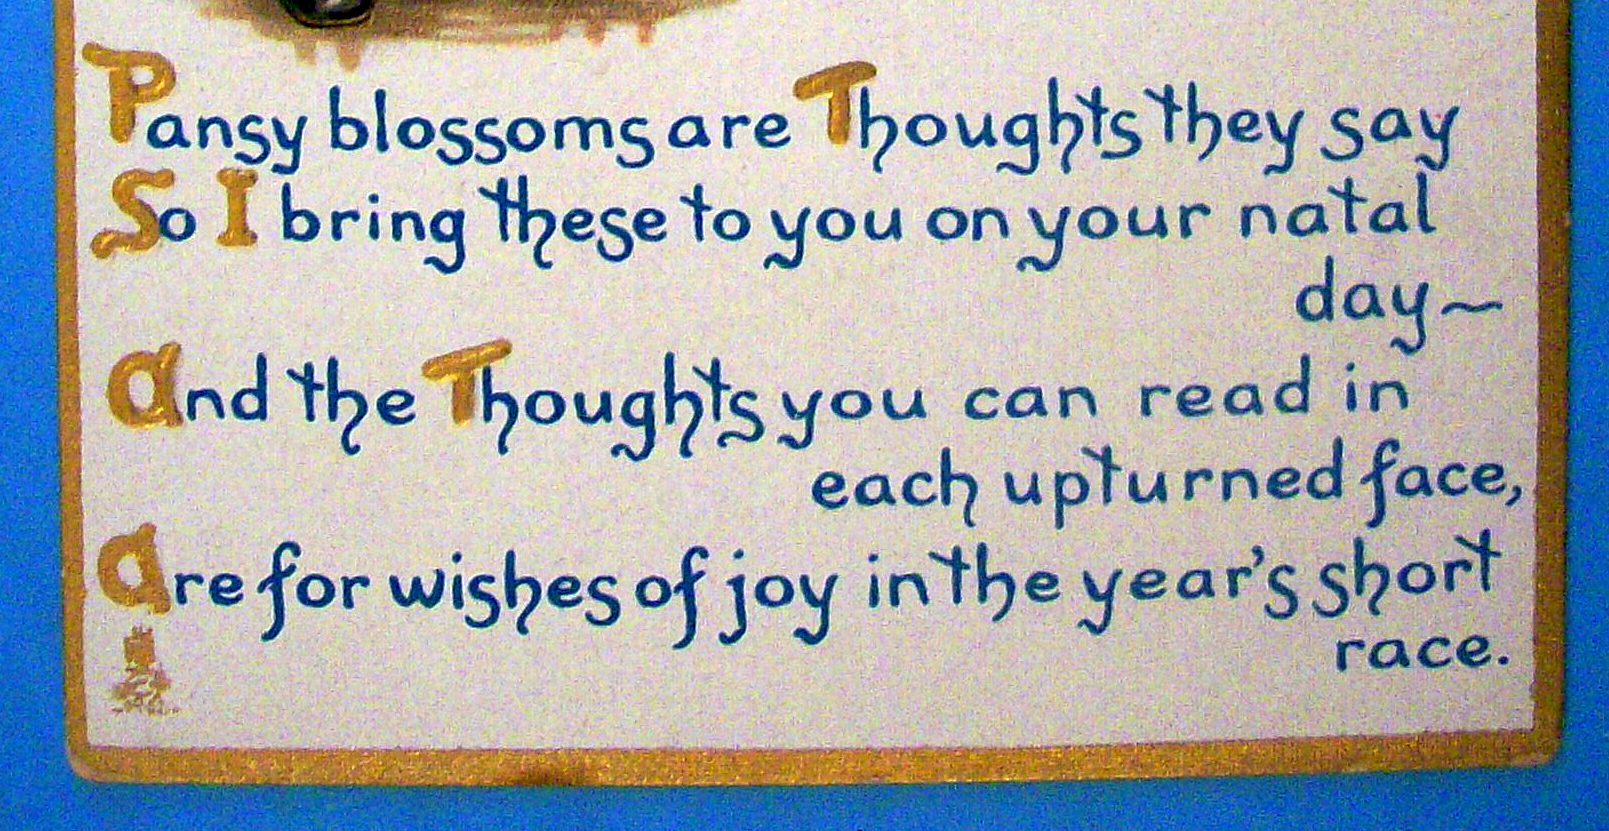 Pansy blossoms are Thoughts they say
So I bring these to you on your natal
day~
And the Thoughts you can read in
each upturned face,
Are for wishes of joy in the year's short
race.